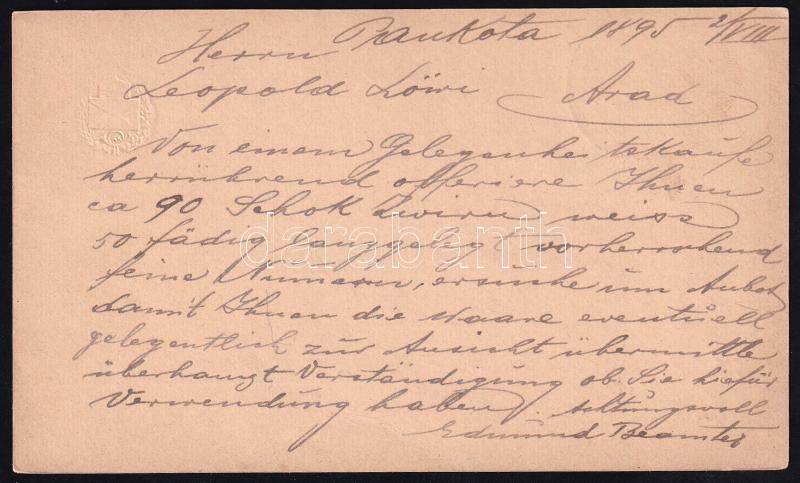 Pankota 1895 2/VIII
Herrn
Leopold Löwi Arad
Von einem Gelegenheitskaufe
herrührend offeriere Ihnen
ca 90 Schok Zwirn weiss
50 fädig langgelegt vorherrschend
feine Numern, ersuche um Anbot
damit Ihnen die Waare eventuell
gelegentlich zur Ansicht übermittle
überhaupt Verständigung ob Sie hiefür
Verwendung haben. Achtungsvoll
Edmund
darabanth